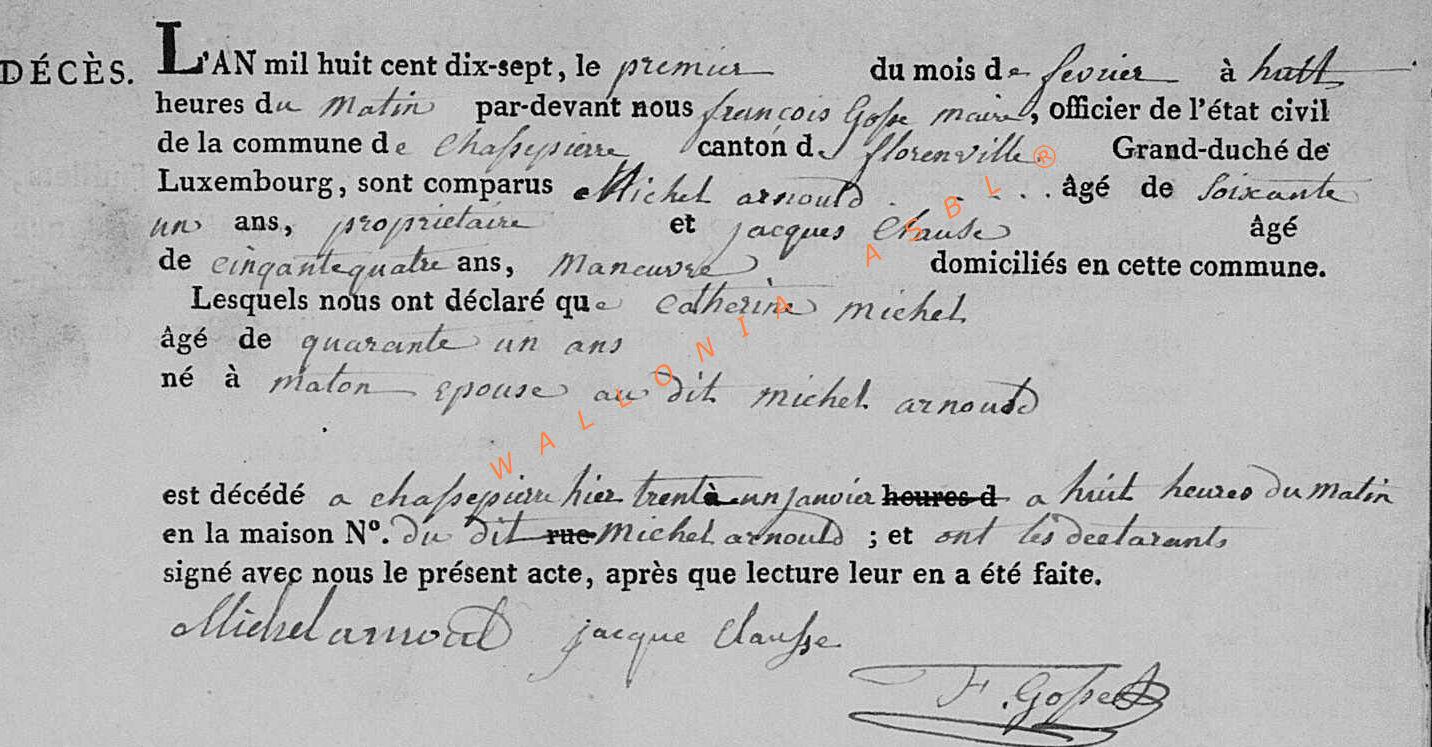 DÉCÈS. L'AN mil huit cent dix-sept, le premier du mois de fevrier à huit
heures du matin par-devant nous françois Gosse maire, officier de l'état civil
de la commune de Chassepierre canton de florenville Grand-duché de
Luxembourg, sont comparus Michel arnould . . . . . âgé de soixante
un ans, proprietaire et jacques Clausse âgé
de cinqantequatre ans, Maneuvre domiciliés en cette commune.
Lesquels nous ont déclaré que catherine michel
âgé de quarante un ans
né à maton epouse au dit michel arnould
est décédé a chassepierre hier trente un janvier heures d a huit heures du matin
en la maison Nº. du dit rue Michel arnould ; et ont les declarants
signé avec nous le présent acte, après que lecture leur en a été faite.
Michel arnould jacque Clausse
F. Gosse
WALLONIA ASBL ®